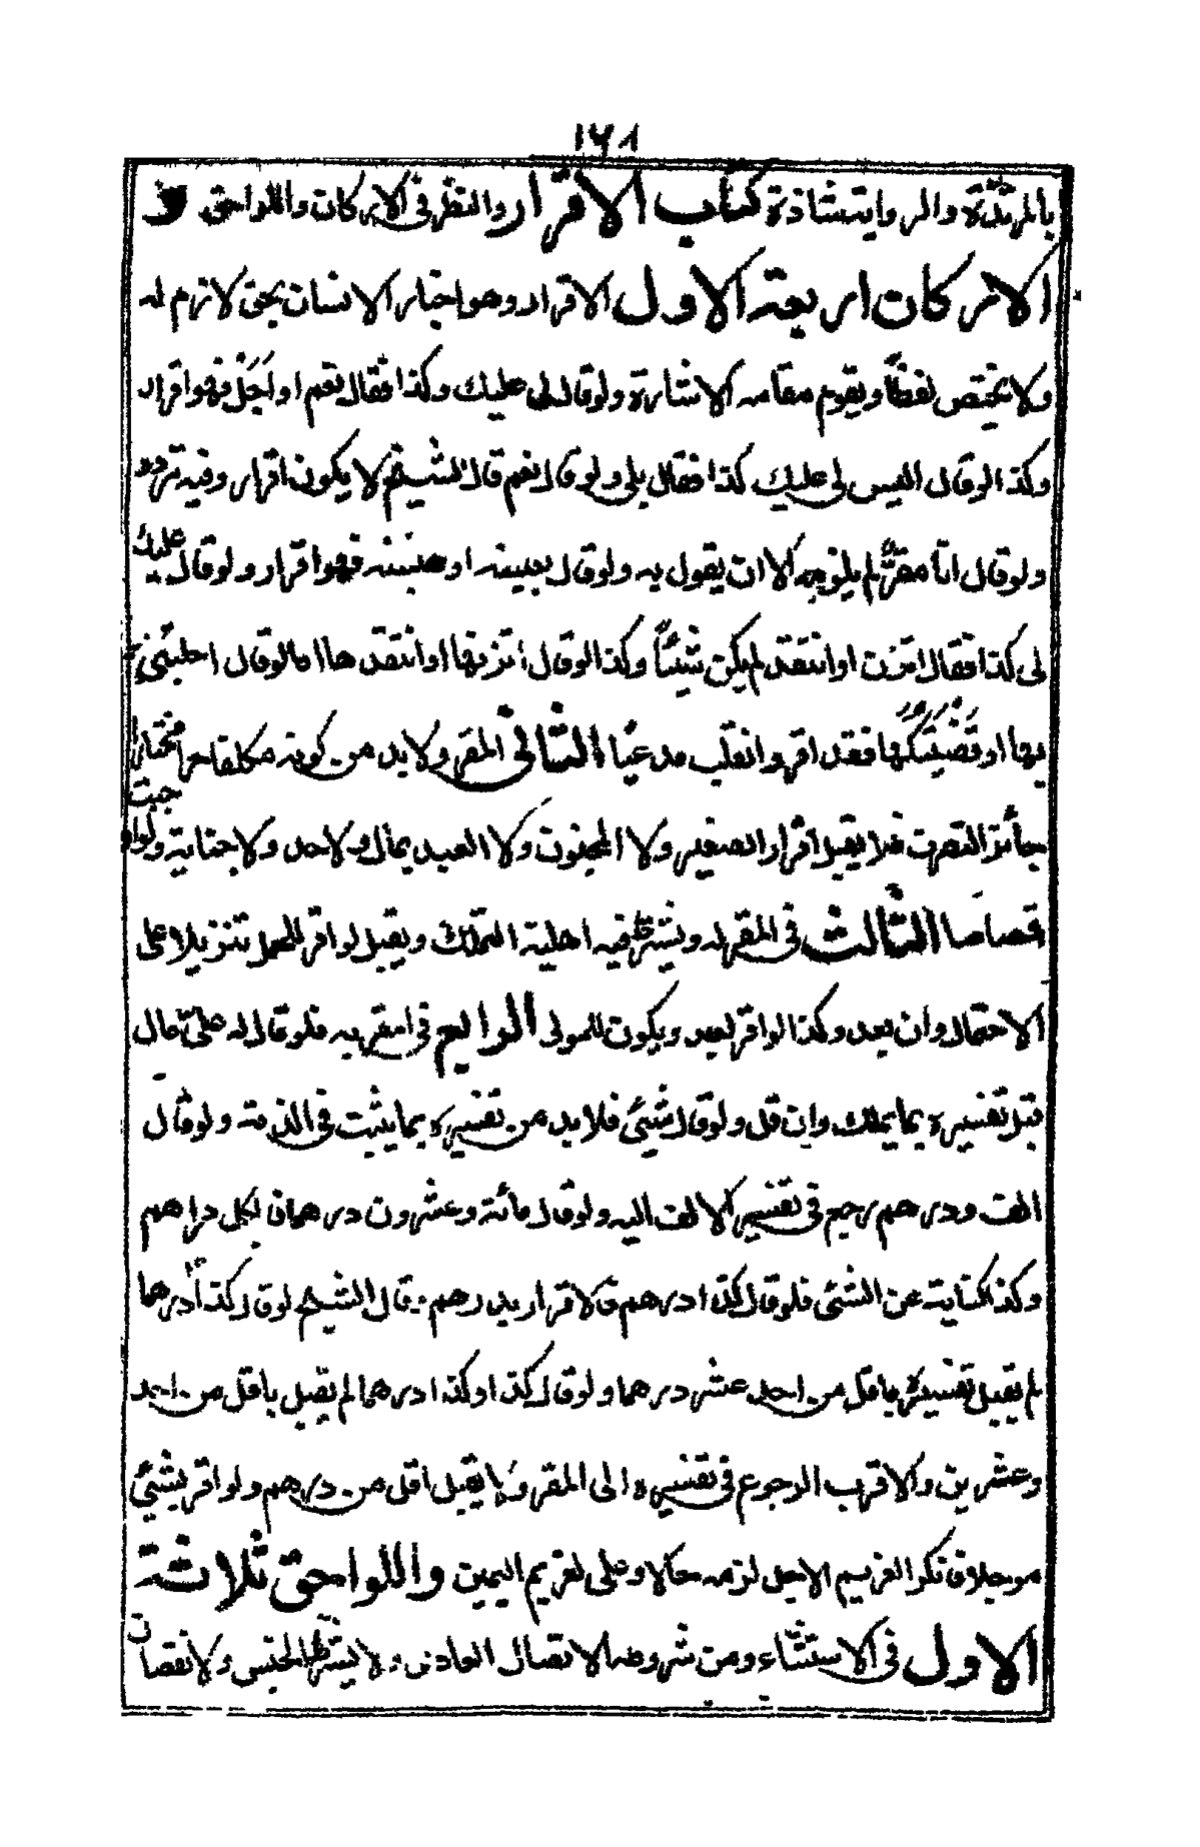 ١٦٨
بالمرتدة والروايت شاذة كتاب الاقرار والنظر في الاركان واللواحق و
الاركان اربعة الاول الاقرار وهو اخبار الانسان بحق لازم له
ولا يختص لفظاً ويقوم مقامه الاشارة ولو قال لى عليك وكذا فقال نعم او اَجَلْ فهو اقرار
وكذا لو قال اليس لى عليك كذا فقال بلى ولو قال نعم قال الشيخ لا يكون اقرار وفيه تردد
ولو قال انا مقرٌّ لم يلزمه الا ان يقول به ولو قال بعينه او هبنيه فهو اقرار ولو قال عليك
لى كذا فقال اتزن او انتقد لم يكن شيئاً وكذا لو قال اتزنها او انتقدها اما لو قال اجلنى
بها او قَضَيْتُكَها فقد اقر وانقلب مدعيا الثانى المقر ولا بد من كونه مكلفا حرا مختارا
جائز التصرف فلا يقبل اقرار الصغير ولا المجنون ولا العبد بمال ولا حد ولا جناية ولو اوجبت
قصاصا الثالث في المقر له ويشترط فيه اهلية التملك ويقبل لو اقر للحمل تنزيلا على
الاحتمال وان بعد وكذا لو اقر لعبد ويكون للمولى الرابع في المقر به فلو قال له علىّ مال
قبل تفسيره بما يملك وان قل ولو قال شيئ فلا بد من تفسيره بما يثبت في الذمة ولو قال
الف ودرهم رجع في تفسير الالف اليه ولو قال مائة وعشرون درهما فالكل دراهم
وكذا كناية عن الشئ فلو قال كذا درهم فالاقرار بدرهم وقال الشيخ لو قال كذا درهما
لم يقبل تفسيره باقل من احد عشر درهما ولو قال كذا وكذا درهما لم يقبل باقل من احد
وعشرين والاقرب الرجوع في تفسيره الى المقر ولا يقبل اقل من درهم ولو اقر بشيئ
موجلا فانكر الغريم الاجل لزمه حالا وعلى الغريم اليمين واللواحق ثلاثة
الاول في الاستثناء ومن شروطه الاتصال العادى ولا يشترط الجنس ولا نقصان